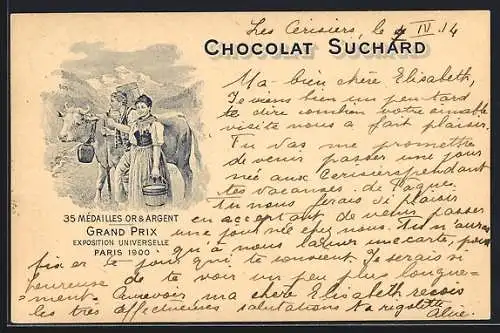 Les Cerisiers, le 9 IV. 14
CHOCOLAT SUCHARD
Ma bien chère Elisabeth,
Je viens bien un peu tard
te dire combien votre aimable
visite nous a fait plaisir.
Tu vas me promettre
de venir passer une jour
née aux Cerisiers pendant
tes vacances de Pâque.
Tu nous ferais si plaisir
en acceptant de venir passer
une journée chez nous. Tu n'auras
qu'à nous une carte, pour
35 MÉDAILLES OR & ARGENT
GRAND PRIX
EXPOSITION UNIVERSELLE
PARIS 1900
fixer le jour qui te convient. Je serais si
heureuse de te voir un peu plus longue-
ment. Aurevoir ma chère Elisabeth reçois
les très affectueuses salutations ta rigolotte